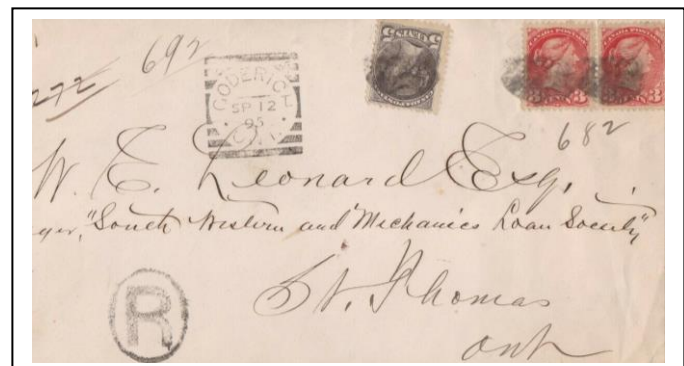 692
272
GODERICH
SP 12
95
ONT.
3 3
682
W. E. Leonard Esq.
"South Western and Mechanics Loan Society"
St. Thomas
Ont
R